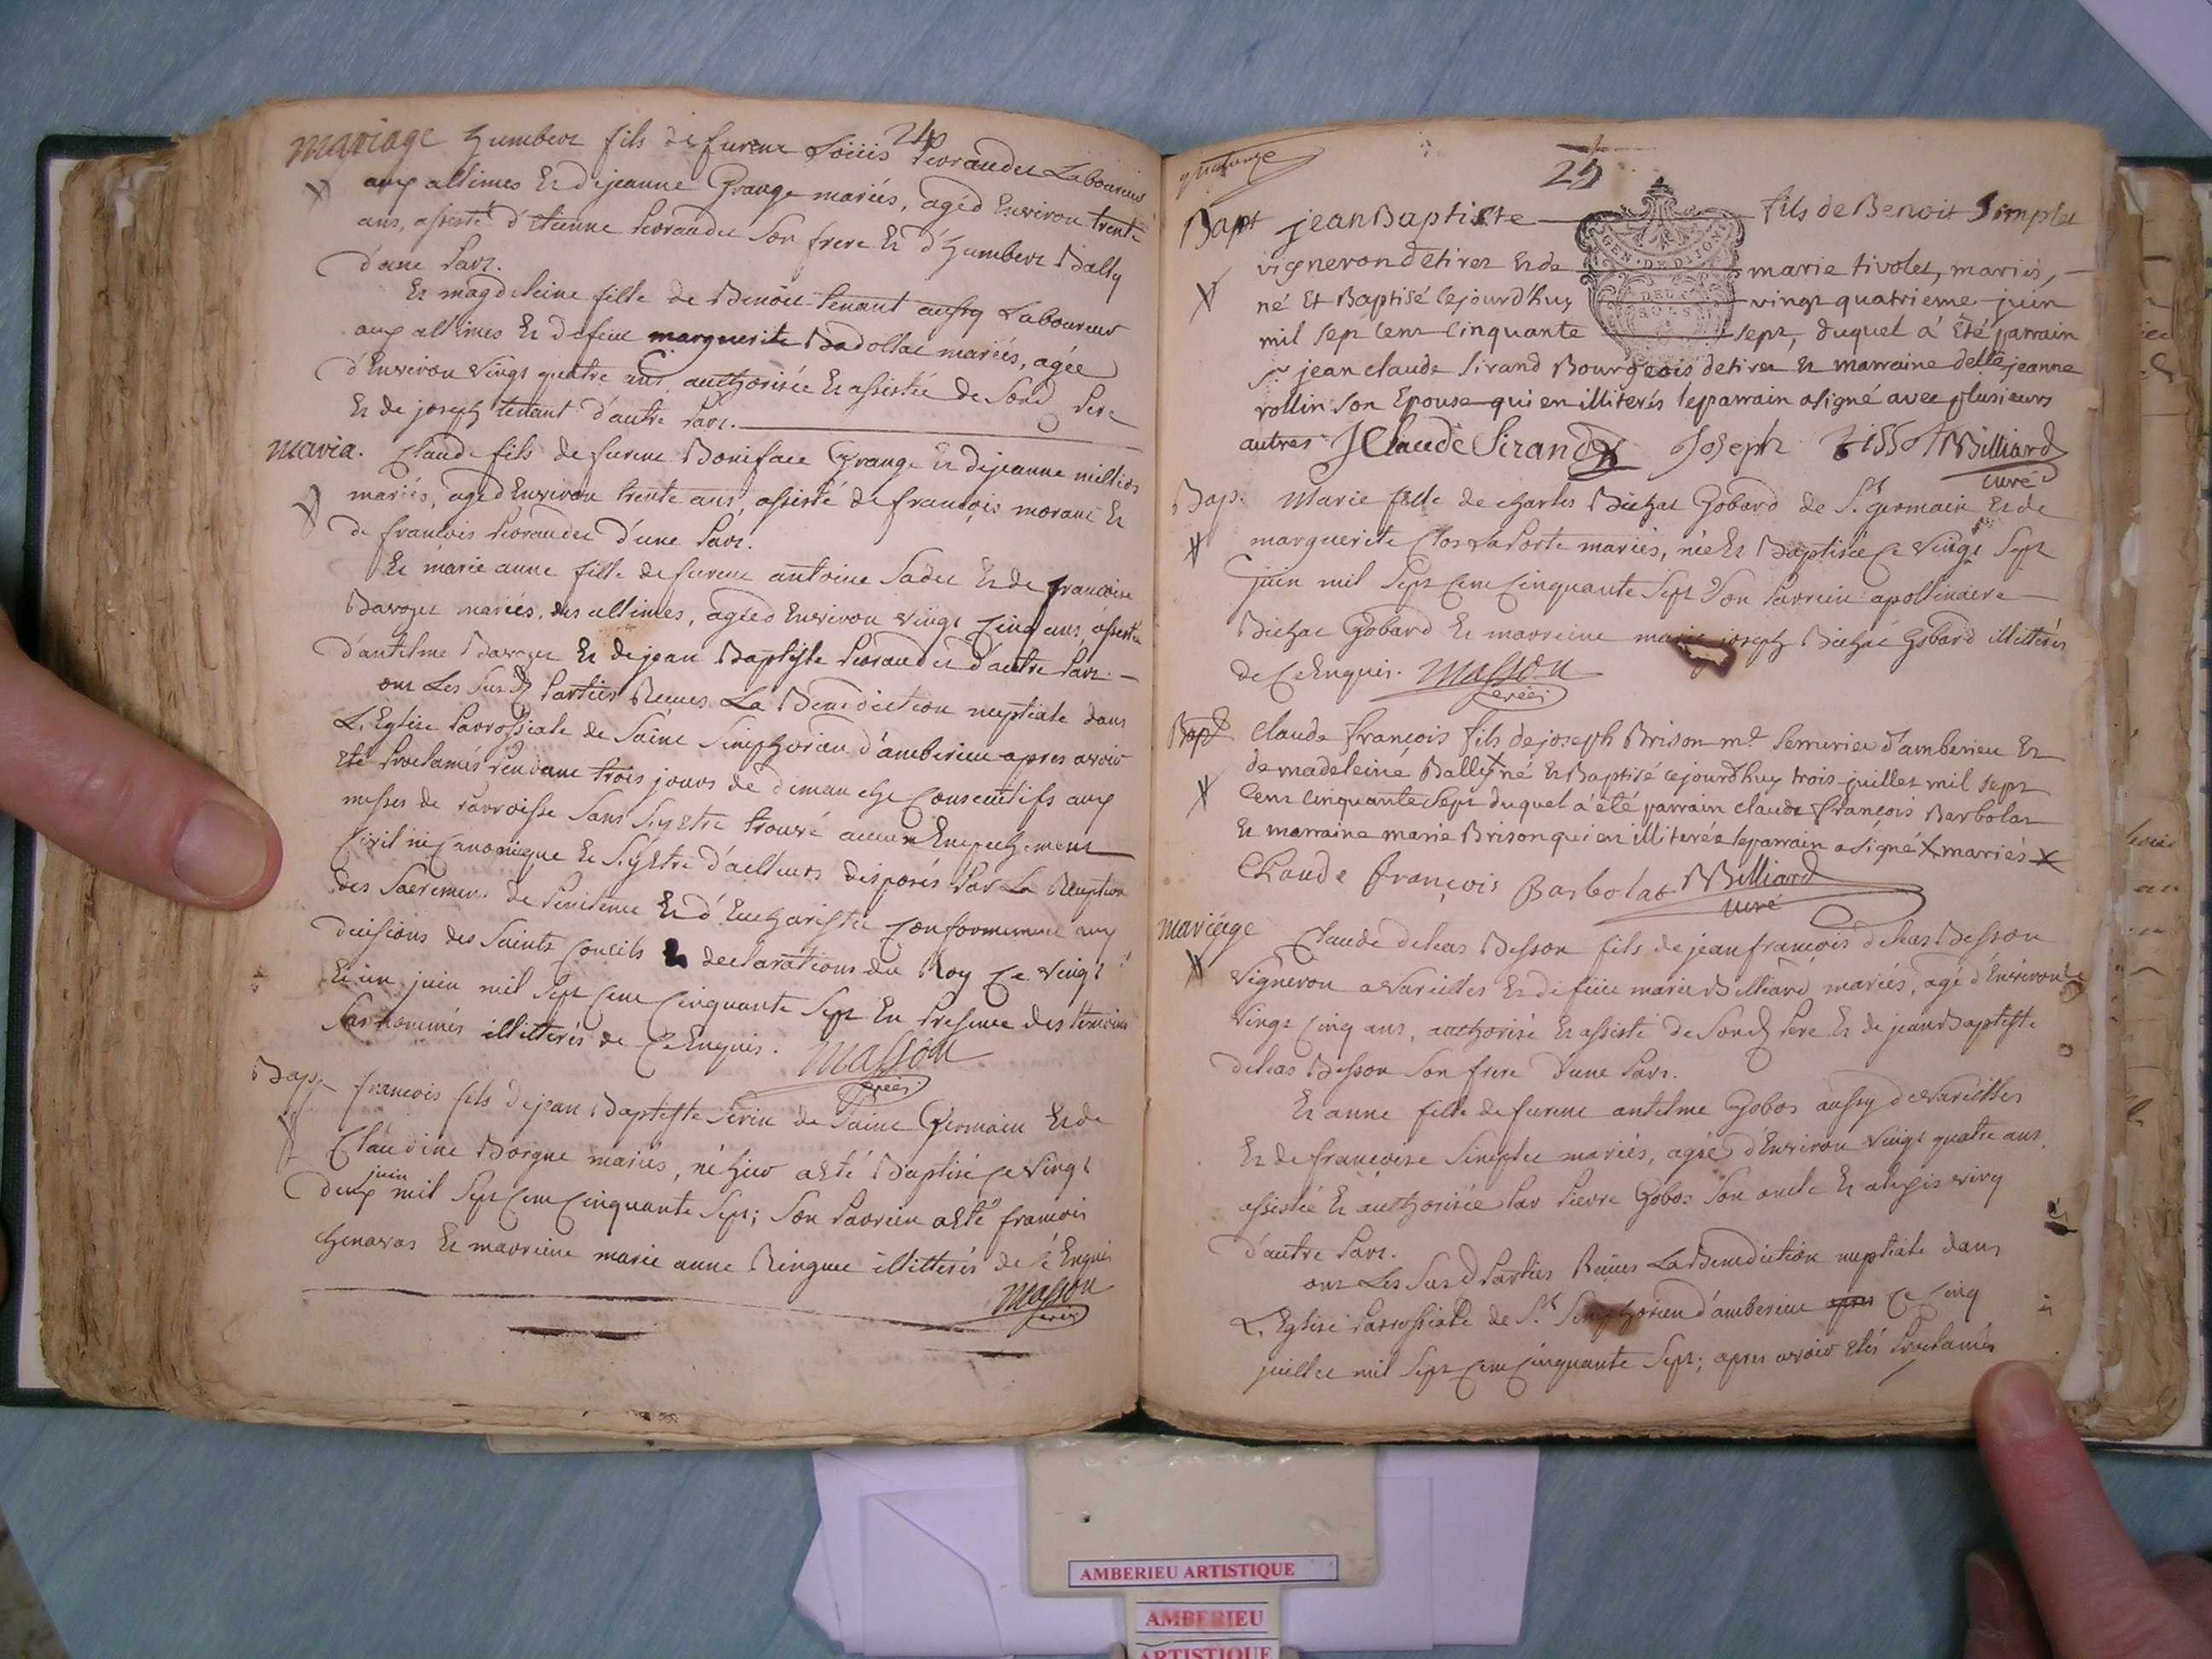 24
mariage humbert fils de furent Loüis Peoraudet Laboureur
aux allimes Et de jeanne Grange mariés, aged Environ trente
ans, assisté d'Etienne Peoraudet son frere Et d'humbert Bally
d'une part.
Et magdeleine fille de Benoit tenant aussy Laboureur
aux allimes Et de feue marguerite Badollat mariés, agée
d'Environ vingt quatre ans authorisée Et assistée de Sond Pere
Et de joseph tenant d'autre Part.
maria. Claude fils de furent Boniface Grange Et de jeanne
mariés, aged Environ trente ans, assisté de françois morant Et
de françois Peoraudet d'une Part.
Et marie anne fille de furent antoine Et de francoise
mariés des allimes, aged Environ vingt Cinq ans, assistée
d'antelme Et de jean Baptiste Peoraudet d'autre Part.
ont Les Susd Parties Reçues La Benediction nuptiale dans
L'Eglise Parrossiale de Saint Simphorien d'amberieu apres avoir
Eté Proclamés Pendant trois jours de dimanche Consecutifs aux
messes de Parroisse Sans S'y Etre trouvé aucun Empechement
Civil ni Canonique Et S'y Etre d'ailleurs disposés Par La Reception
des Sacremen. de Penitence Et d'Eucharistie Conformement aux
decisions des Saints Conciles Et declarations du Roy Ce vingt
Et un juin mil Sept Cent Cinquante Sept En Presence des temoins
Susnommés illitterés de Ce Enquis. Masson
Bap. françois fils de jean Baptiste Serin de Saint Germain Et de
Claudine Borgne mariés, né hier a Eté Baptisé Ce vingt
deux juin mil Sept Cent Cinquante Sept; Son Parrein a Eté françois
Chenavas Et marreine marie anne Ringuet illitterés de Ce Enquis
Masson
25
Bapt jean Baptiste fils de Benoit Simplet
GEN · DE DIJON
vigneron detiret Et de marie tivolet, mariés,
né Et Baptisé cejourd'huy vingt quatrieme juin
mil sept cent cinquante sept, duquel a Eté parrain
Sr jean claude Sirand Bourgeois detiret Et marraine delle jeanne
rollin son Epouse qui en illiterés le parrain a signé avec plusieurs
autres JClaude Sirand Joseph tissot Billiard
curé
Bap. Marie fille de charles Bichat Gobard de St germain Et de
marguerite Clos La Porte mariés, née Et Baptisée Ce vingt Sept
juin mil Sept Cent Cinquante Sept Son Parrein apollinaire
Bichat Gobard Et marreine marie joseph Bichat Gobard illitterés
de Ce Enquis. Masson
Bapt Claude françois fils de joseph Brison me Serrurier d'amberieu Et
de madeleine Bally X né Et Baptisé cejourd'huy trois juillet mil sept
cent cinquante sept duquel a été parrain claude françois Barbolat
Et marraine marie Brison qui en illiterée le parrain a signé X mariés X
Claude françois Barbolat Billiard
curé
mariage Claude deleas Besson fils de jean françois deleas Besson
vigneron a Vareilles Et de feue marie Billiard mariés, agé d'Environ
vingt Cinq ans, authorisé Et assisté de Sond Pere Et de jean Baptiste
deleas Besson Son frere d'une Part.
Et anne fille de furent antelme Gobos aussy de Vareilles
Et de francoise Simplet mariés, agée d'Environ vingt quatre ans,
assistée Et authorisée Par Pierre Gobos Son oncle Et alexis
d'autre Part.
ont Les Susd Parties Reçues La Benediction nuptiale dans
L'Eglise Parrossiale de St Simphorien d'amberieu apres Ce Cinq
juillet mil Sept Cent Cinquante Sept; apres avoir Etés Proclamés
AMBERIEU ARTISTIQUE
AMBERIEU
ARTISTIQUE